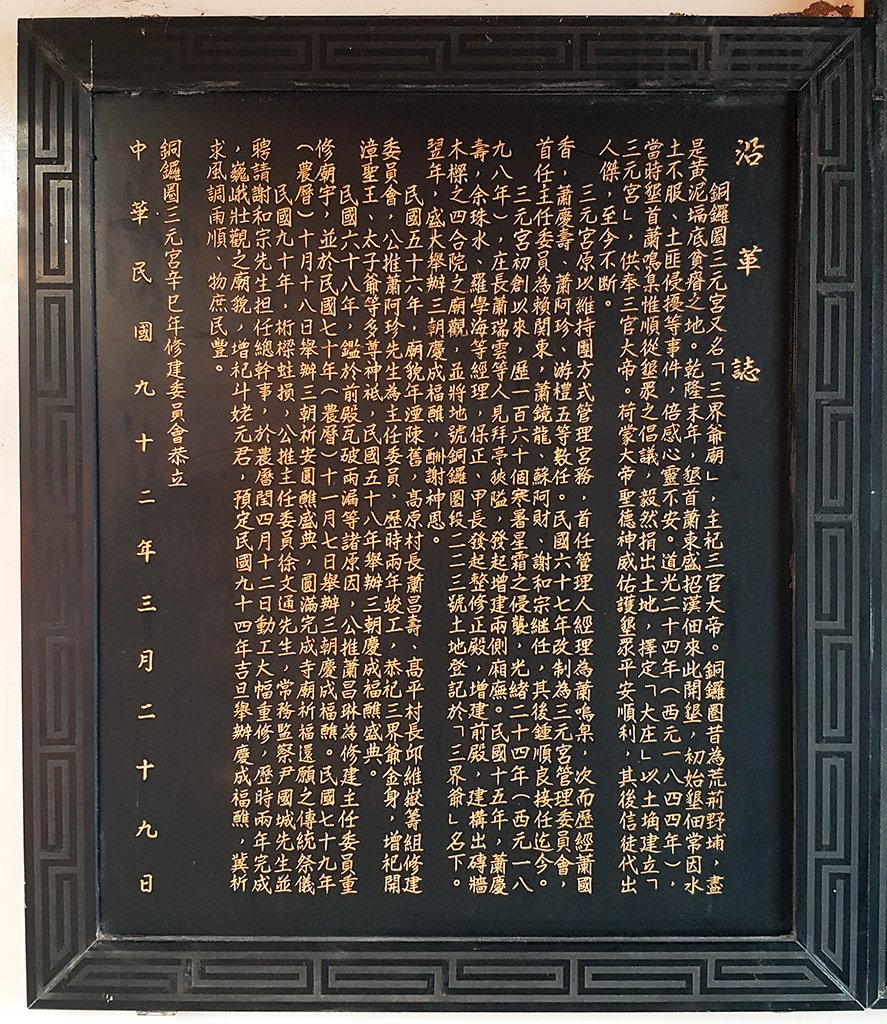 沿革誌
銅鑼圈三元宮又名「三界爺廟」，主祀三官大帝。銅鑼圈昔為荒荊野埔，盡
是黃泥塥底貧瘠之地。乾隆末年，墾首蕭東盛招漢佃來此開墾，初始墾佃常因水
土不服、土匪侵擾等事件，倍感心靈不安。道光二十四年（西元一八四四年），
當時墾首蕭鳴皋惟順從墾眾之倡議，毅然捐出土地，擇定「大庄」以土埆建立「
三元宮」，供奉三官大帝。荷蒙大帝聖德神威佑護墾眾平安順利，其後信徒代出
人傑，至今不斷。
三元宮原以維持團方式管理宮務，首任管理人經理為蕭鳴皋，次而歷經蕭國
香，蕭慶壽、蕭阿珍、游禮五等數任。民國六十七年改制為三元宮管理委員會，
首任主任委員為賴關東，蕭鏡龍、蘇阿財、謝和宗繼任，其後鍾順良接任迄今。
三元宮初創以來，歷一百六十個寒暑星霜之侵襲，光緒二十四年（西元一八
九八年），庄長蕭瑞雲等人見拜亭狹隘，發起增建兩側廂廡。民國十五年，蕭慶
壽，余珠水、羅學海等經理，保正、甲長發起整修正殿，增建前殿，建構出磚牆
木樑之四合院之廟觀，並將地號銅鑼圈段二二三號土地登記於「三界爺」名下。
翌年，盛大舉辦三朝慶成福醮，酬謝神恩。
民國五十六年，廟貌年湮陳舊，高原村長蕭昌壽、高平村長邱維嶽籌組修建
委員會，公推蕭阿珍先生為主任委員，歷時兩年竣工，恭祀三界爺金身，增祀開
漳聖王、太子爺等多尊神祇，民國五十八年舉辦三朝慶成福醮盛典。
民國六十八年，鑑於前殿瓦破雨漏等諸原因，公推蕭昌琳為修建主任委員重
修廟宇，並於民國七十年（農曆）十一月七日舉辦三朝慶成福醮。民國七十九年
（農曆）十月十八日舉辦三朝祈安圓醮盛典，圓滿完成寺廟祈福還願之傳統祭儀
民國九十年，桁樑蛀損，公推主任委員徐文通先生，常務監察尹國城先生並
聘請謝和宗先生担任總幹事，於農曆閏四月十二日動工大幅重修，歷時兩年完成
，巍峨壯觀之廟貌，增祀斗姥元君，預定民國九十四年吉旦舉辦慶成福醮，冀祈
求風調雨順、物庶民豐。
銅鑼圈三元宮辛巳年修建委員會恭立
中華民國九十二年三月二十九日